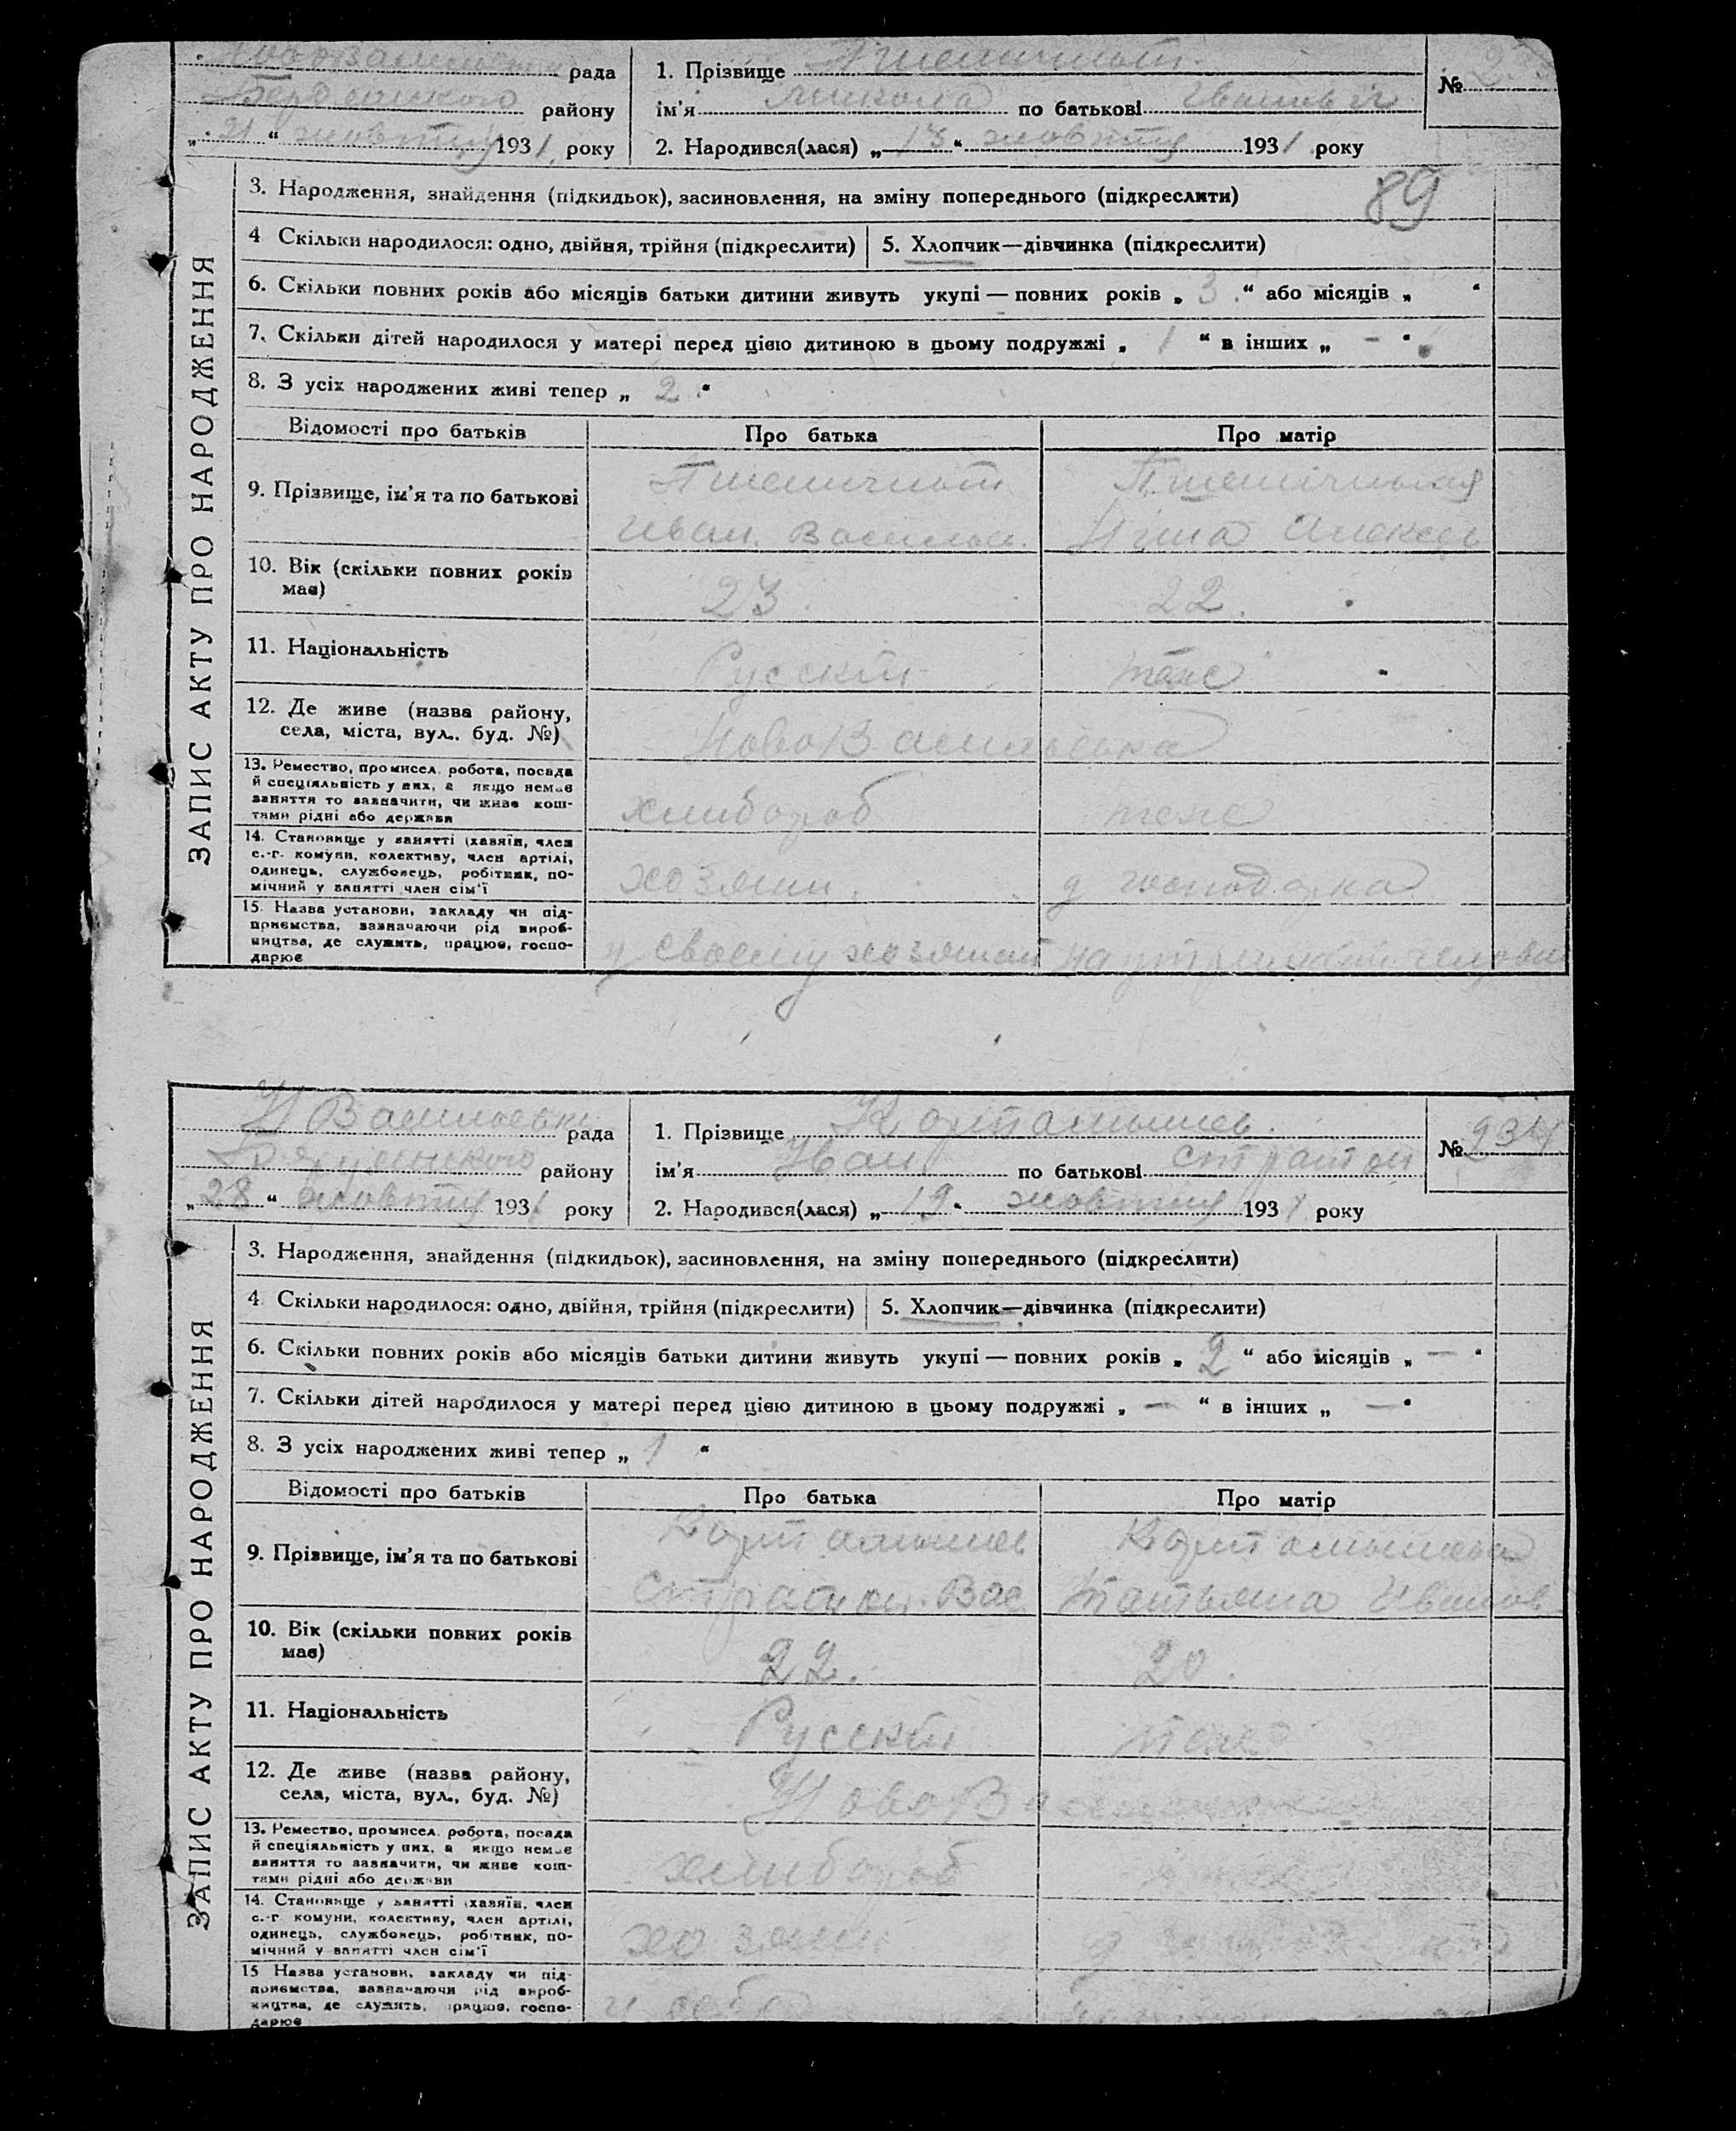 рада
району
" 21 " жовтня 1931 року
1. Прізвище Пшеничный
ім'я Микола по батькові Иванов
2. Народився(лася) „ 13 “ жовтня 1931 року
№
89
ЗАПИС АКТУ ПРО НАРОДЖЕННЯ
3. Народження, знайдення (підкидьок), засиновлення, на зміну попереднього (підкреслити)
4 Скільки народилося: одно, двійня, трійня (підкреслити) 5. Хлопчик—дівчинка (підкреслити)
6. Скільки повних років або місяців батьки дитини живуть укупі — повних років „ 3 “ або місяців „ “
7. Скільки дітей народилося у матері перед цією дитиною в цьому подружжі „ 1 “ в інших „ — “
8. З усіх народжених живі тепер „ 2 “
Відомості про батьків Про батька Про матір
9. Прізвище, ім'я та по батькові
Пшеничный
Иван Васильев.
Нина Алексеев
10. Вік (скільки повних років
має)
23. 22.
11. Національність
Русский тоже
12. Де живе (назва району,
села, міста, вул.. буд. №)
Ново Васильевка
13. Ремество, промисел. робота, посада
й спеціяльність у них, а якщо немає
заняття то зазначити, чи живе кош-
тами рідні або держави
хлибороб тоже
14. Становище у занятті (хазяїн, член
с.-г. комуни, колективу, член артілі,
одинець, службовець, робітник, по-
мічний у занятті член сім'ї
хозяин. д господарка
15. Назва установи, закладу чи під-
приємства, зазначаючи рід вироб-
ництва, де служить, працює, госпо-
дарює
у своему
Н Васильевка рада
району
„ 28 “ жовтня 1931 року
1. Прізвище Карташышев
ім'я Иван по батькові Стратон
2. Народився(лася) „ 19 “ жовтня 1931 року
№ 234
ЗАПИС АКТУ ПРО НАРОДЖЕННЯ
3. Народження, знайдення (підкидьок), засиновлення, на зміну попереднього (підкреслити)
4 Скільки народилося: одно, двійня, трійня (підкреслити) 5. Хлопчик—дівчинка (підкреслити)
6. Скільки повних років або місяців батьки дитини живуть укупі — повних років „ 2 “ або місяців „ — “
7. Скільки дітей народилося у матері перед цією дитиною в цьому подружжі „ — “ в інших „ — “
8. З усіх народжених живі тепер „ 1 “
Відомості про батьків Про батька Про матір
9. Прізвище, ім'я та по батькові
Стратон Вас
Татьяна Иванов
10. Вік (скільки повних років
має)
22. 20.
11. Національність
Русский тоже
12. Де живе (назва району,
села, міста, вул., буд. №)
Ново
13. Ремество, промисел. робота, посада
й спеціяльність у них, а якщо немає
заняття то зазначити, чи живе кош-
тами рідні або держави
хлибороб
14. Становище у занятті (хазяїн, член
с.-г. комуни, колективу, член артілі,
одинець, службовець, робітник, по-
мічний у занятті член сім'ї
хозяин
15 Назва установи, закладу чи під-
приємства, зазначаючи рід вироб-
ництва, де служить, працює, госпо-
дарює